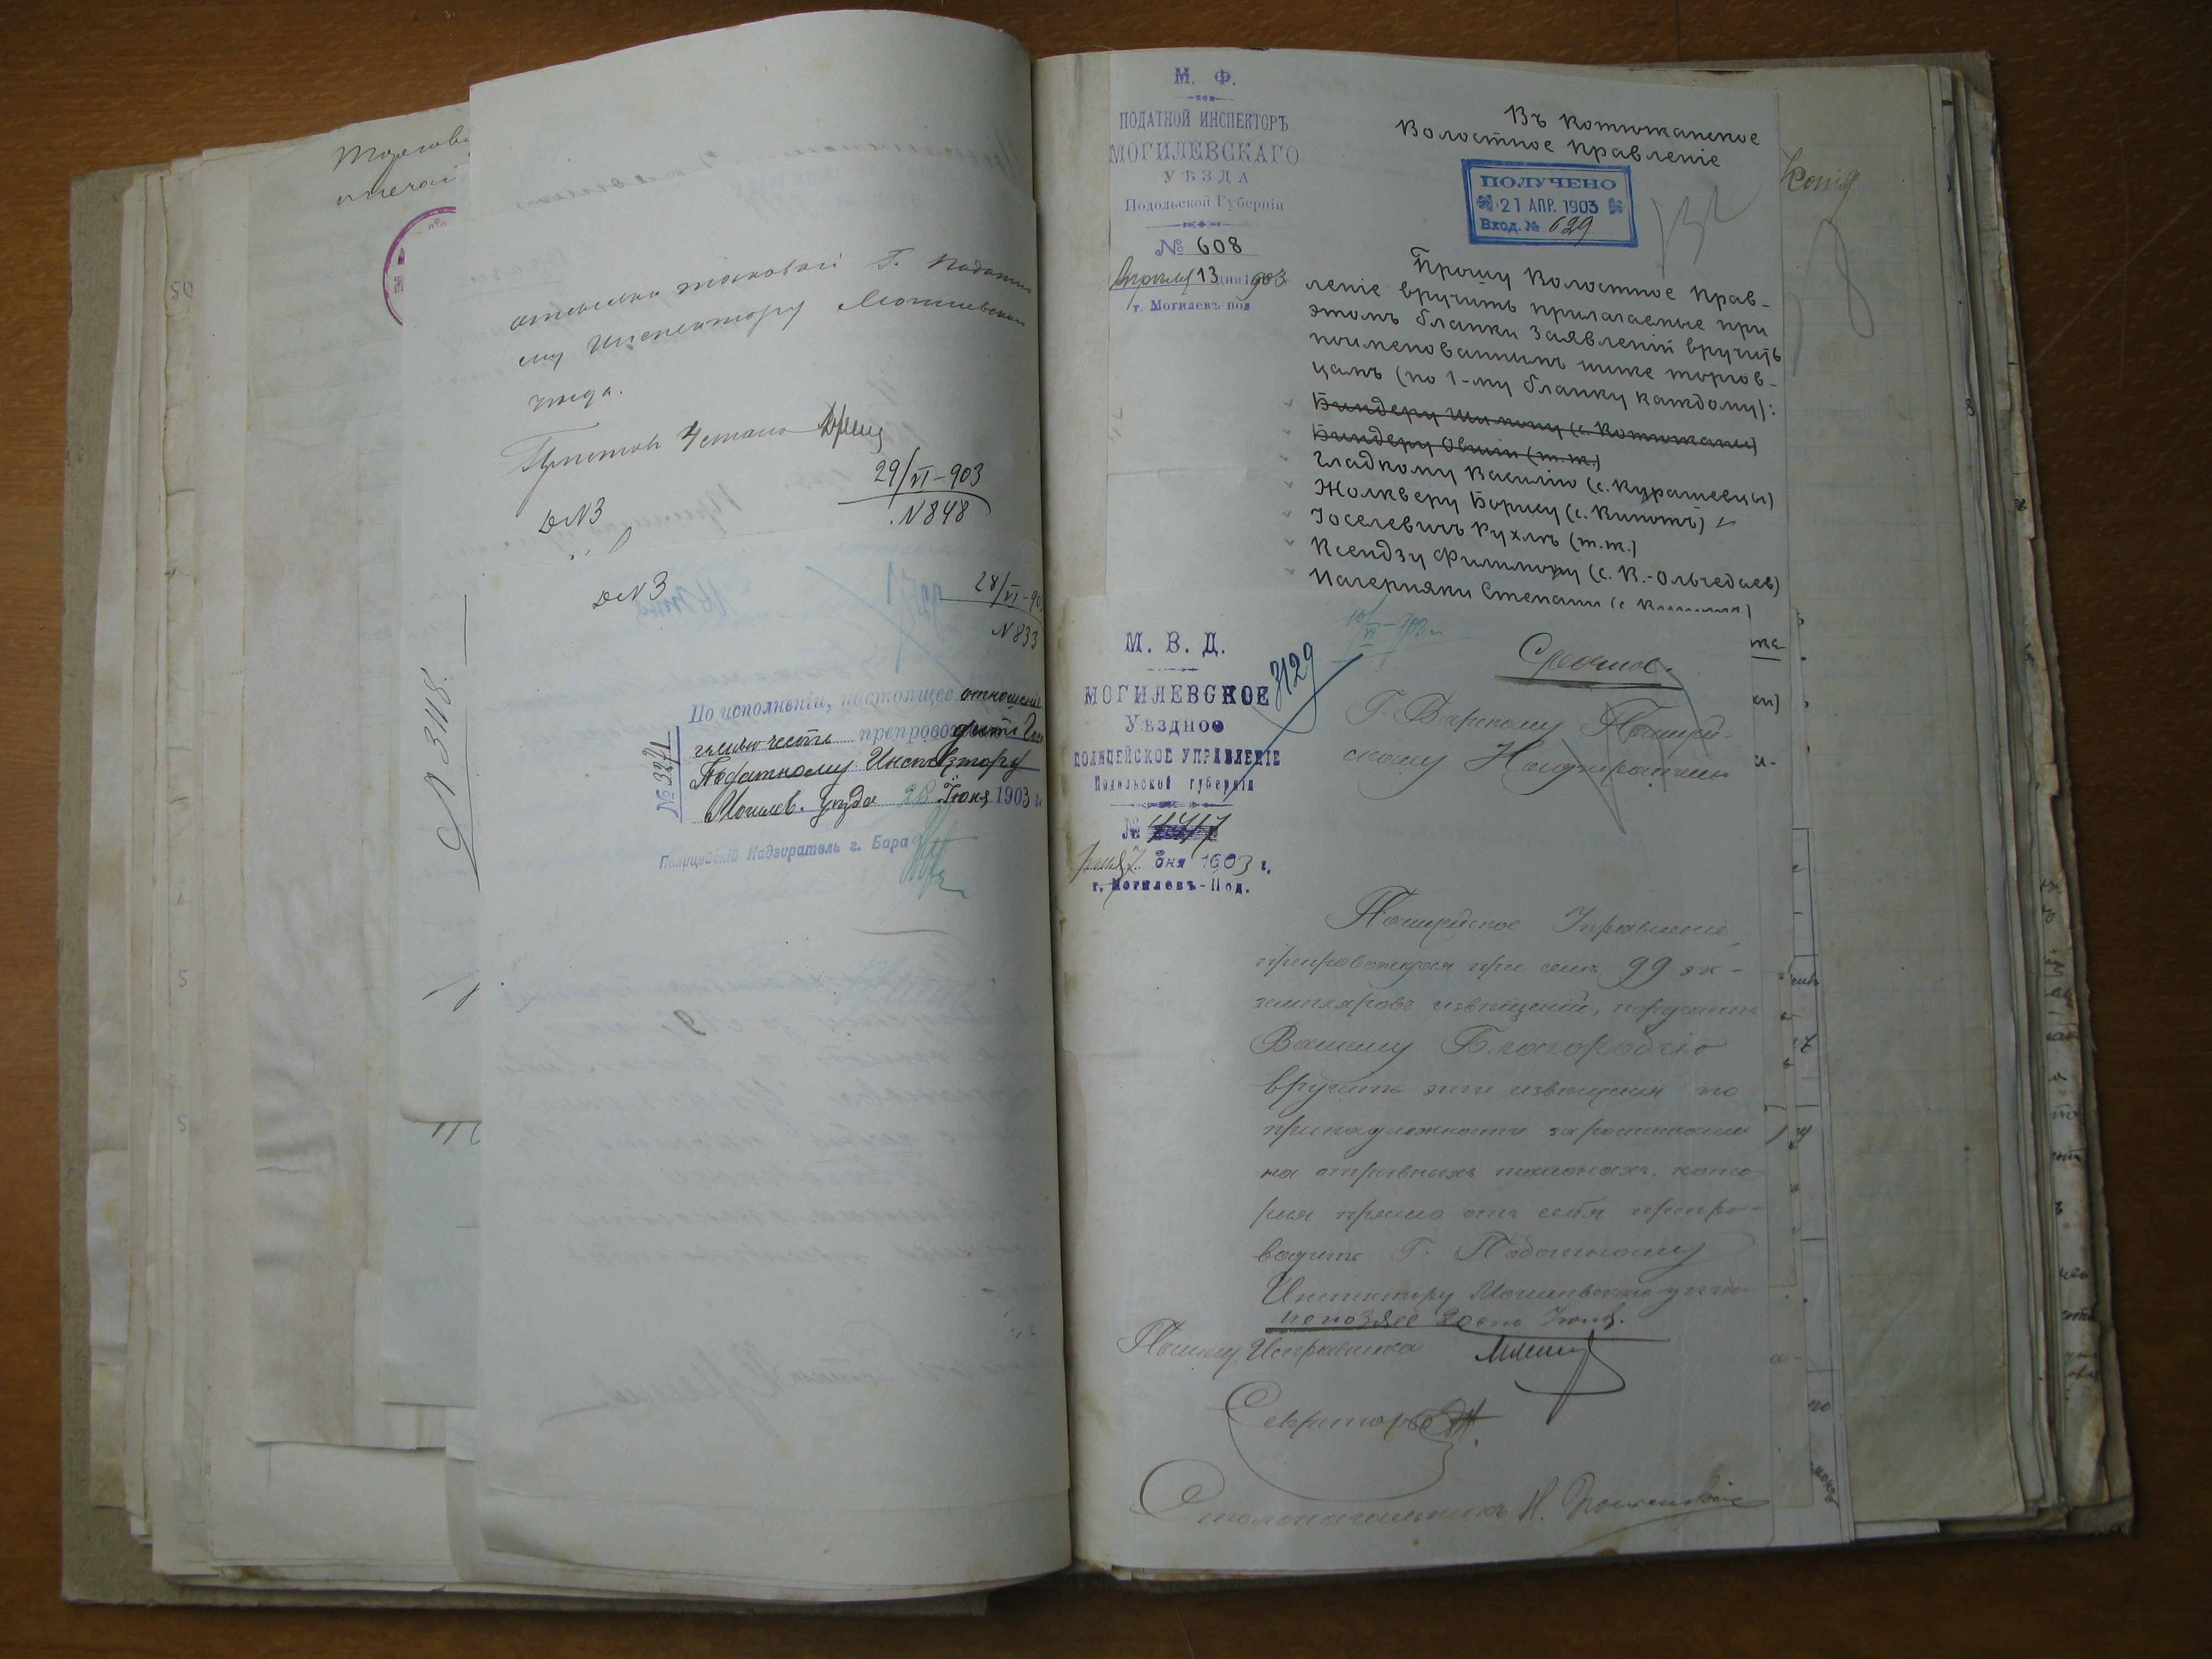 отсылка таковой Г. Податно
му Инспектору Могилевска
уѣзда.
Приставъ 4 стана
29/VI-903
№ 848
Д № 3
Д № 3
28/VI-90
№ 833
№ 3118.
По исполненіи, настоящее отношеніе
имѣю честь препроводить Госп
Податному Инспектору
Могилев. уѣзда 28 Іюня 1903 г.
№ 3271
Полицейскій Надзиратель г. Бара
М. Ф.
ПОДАТНОЙ ИНСПЕКТОРЪ
МОГИЛЕВСКАГО
УѢЗДА
Подольской Губерніи
№ 608
Апрѣля 13 дня 1903
г. Могилевъ-под
Въ Котюжанское
Волостное Правленіе
ПОЛУЧЕНО
21 АПР. 1903
Вход. № 629
Копія
Прошу Волостное Прав-
леніе вручить прилагаемые при
этомъ бланки заявленій вручить
поименованнымъ ниже торгов-
цамъ (по 1-му бланку каждому):
Биндеру Шулиму (с. Котюжаны)
Биндеру Овшію (т.ж.)
Гладкому Василію (с. Курашевцы)
Жолкверу Борису (с. Кипоть)
Іоселевичъ Рухлѣ (т.ж.)
Ксендзу Филимону (с. В.-Ольчедаев)
Пагерняки Степану (с.
М. В. Д.
МОГИЛЕВСКОЕ
Уѣздное
ПОЛИЦЕЙСКОЕ УПРАВЛЕНІЕ
Подольской губерніи
№ 4417
Іюня 7 дня 1903 г.
г. Могилевъ-Под.
3129
10/VI-903 г.
Срочное.
Г. Барскому Полицей-
скому Надзирателю
Полицейское Управленіе,
препровождая при семъ 99 эк-
земпляровъ извѣщеній, поручаетъ
Вашему Благородію
вручить эти извѣщенія по
принадлежности за росписками
на отрывныхъ талонахъ, кото-
рыя прямо отъ себя препро-
водить Г. Податному
Инспектору Могилевскаго уѣзда
не позже 20 сего Іюня.
Помощ. Исправника
Секретарь
Столоначальникъ Н.